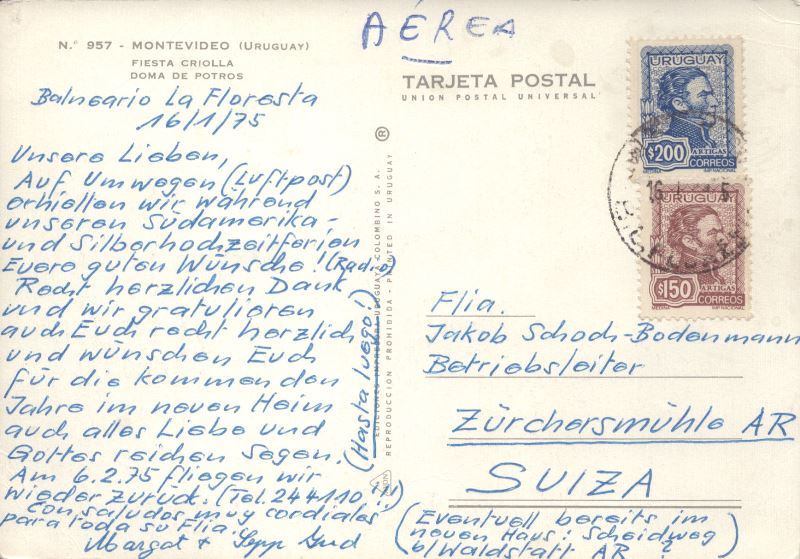 AÉREA
N.º 957 - MONTEVIDEO (URUGUAY)
FIESTA CRIOLLA
DOMA DE POTROS
TARJETA POSTAL
UNION POSTAL UNIVERSAL
URUGUAY
ARTIGAS
$200 CORREOS
URUGUAY
ARTIGAS
$150 CORREOS
Balneario La Floresta
16/1/75
Unsere Lieben,
Auf Umwegen (Luftpost)
erhielten wir während
unseren Südamerika-
und Silberhochzeitferien
Euere guten Wünsche! (Radio)
Recht herzlichen Dank
und wir gratulieren
auch Euch recht herzlich
und wünschen Euch
für die kommenden
Jahre im neuen Heim
auch alles Liebe und
Gottes reichen Segen.
(Hasta luego!)
Am 6.2.75 fliegen wir
wieder zurück. (Tel. 244110
Con saludos muy cordiales
para toda su Flia.
Margot + Sepp
EDICIONES COLOMBINO S. A.
REPRODUCCION PROHIBIDA - PRINTED IN URUGUAY
®
Flia.
Jakob Schoch-Bodenmann
Betriebsleiter
Zürchersmühle AR
SUIZA
(Eventuell bereits im
neuen Haus: Scheidweg
b/Waldstatt AR ?